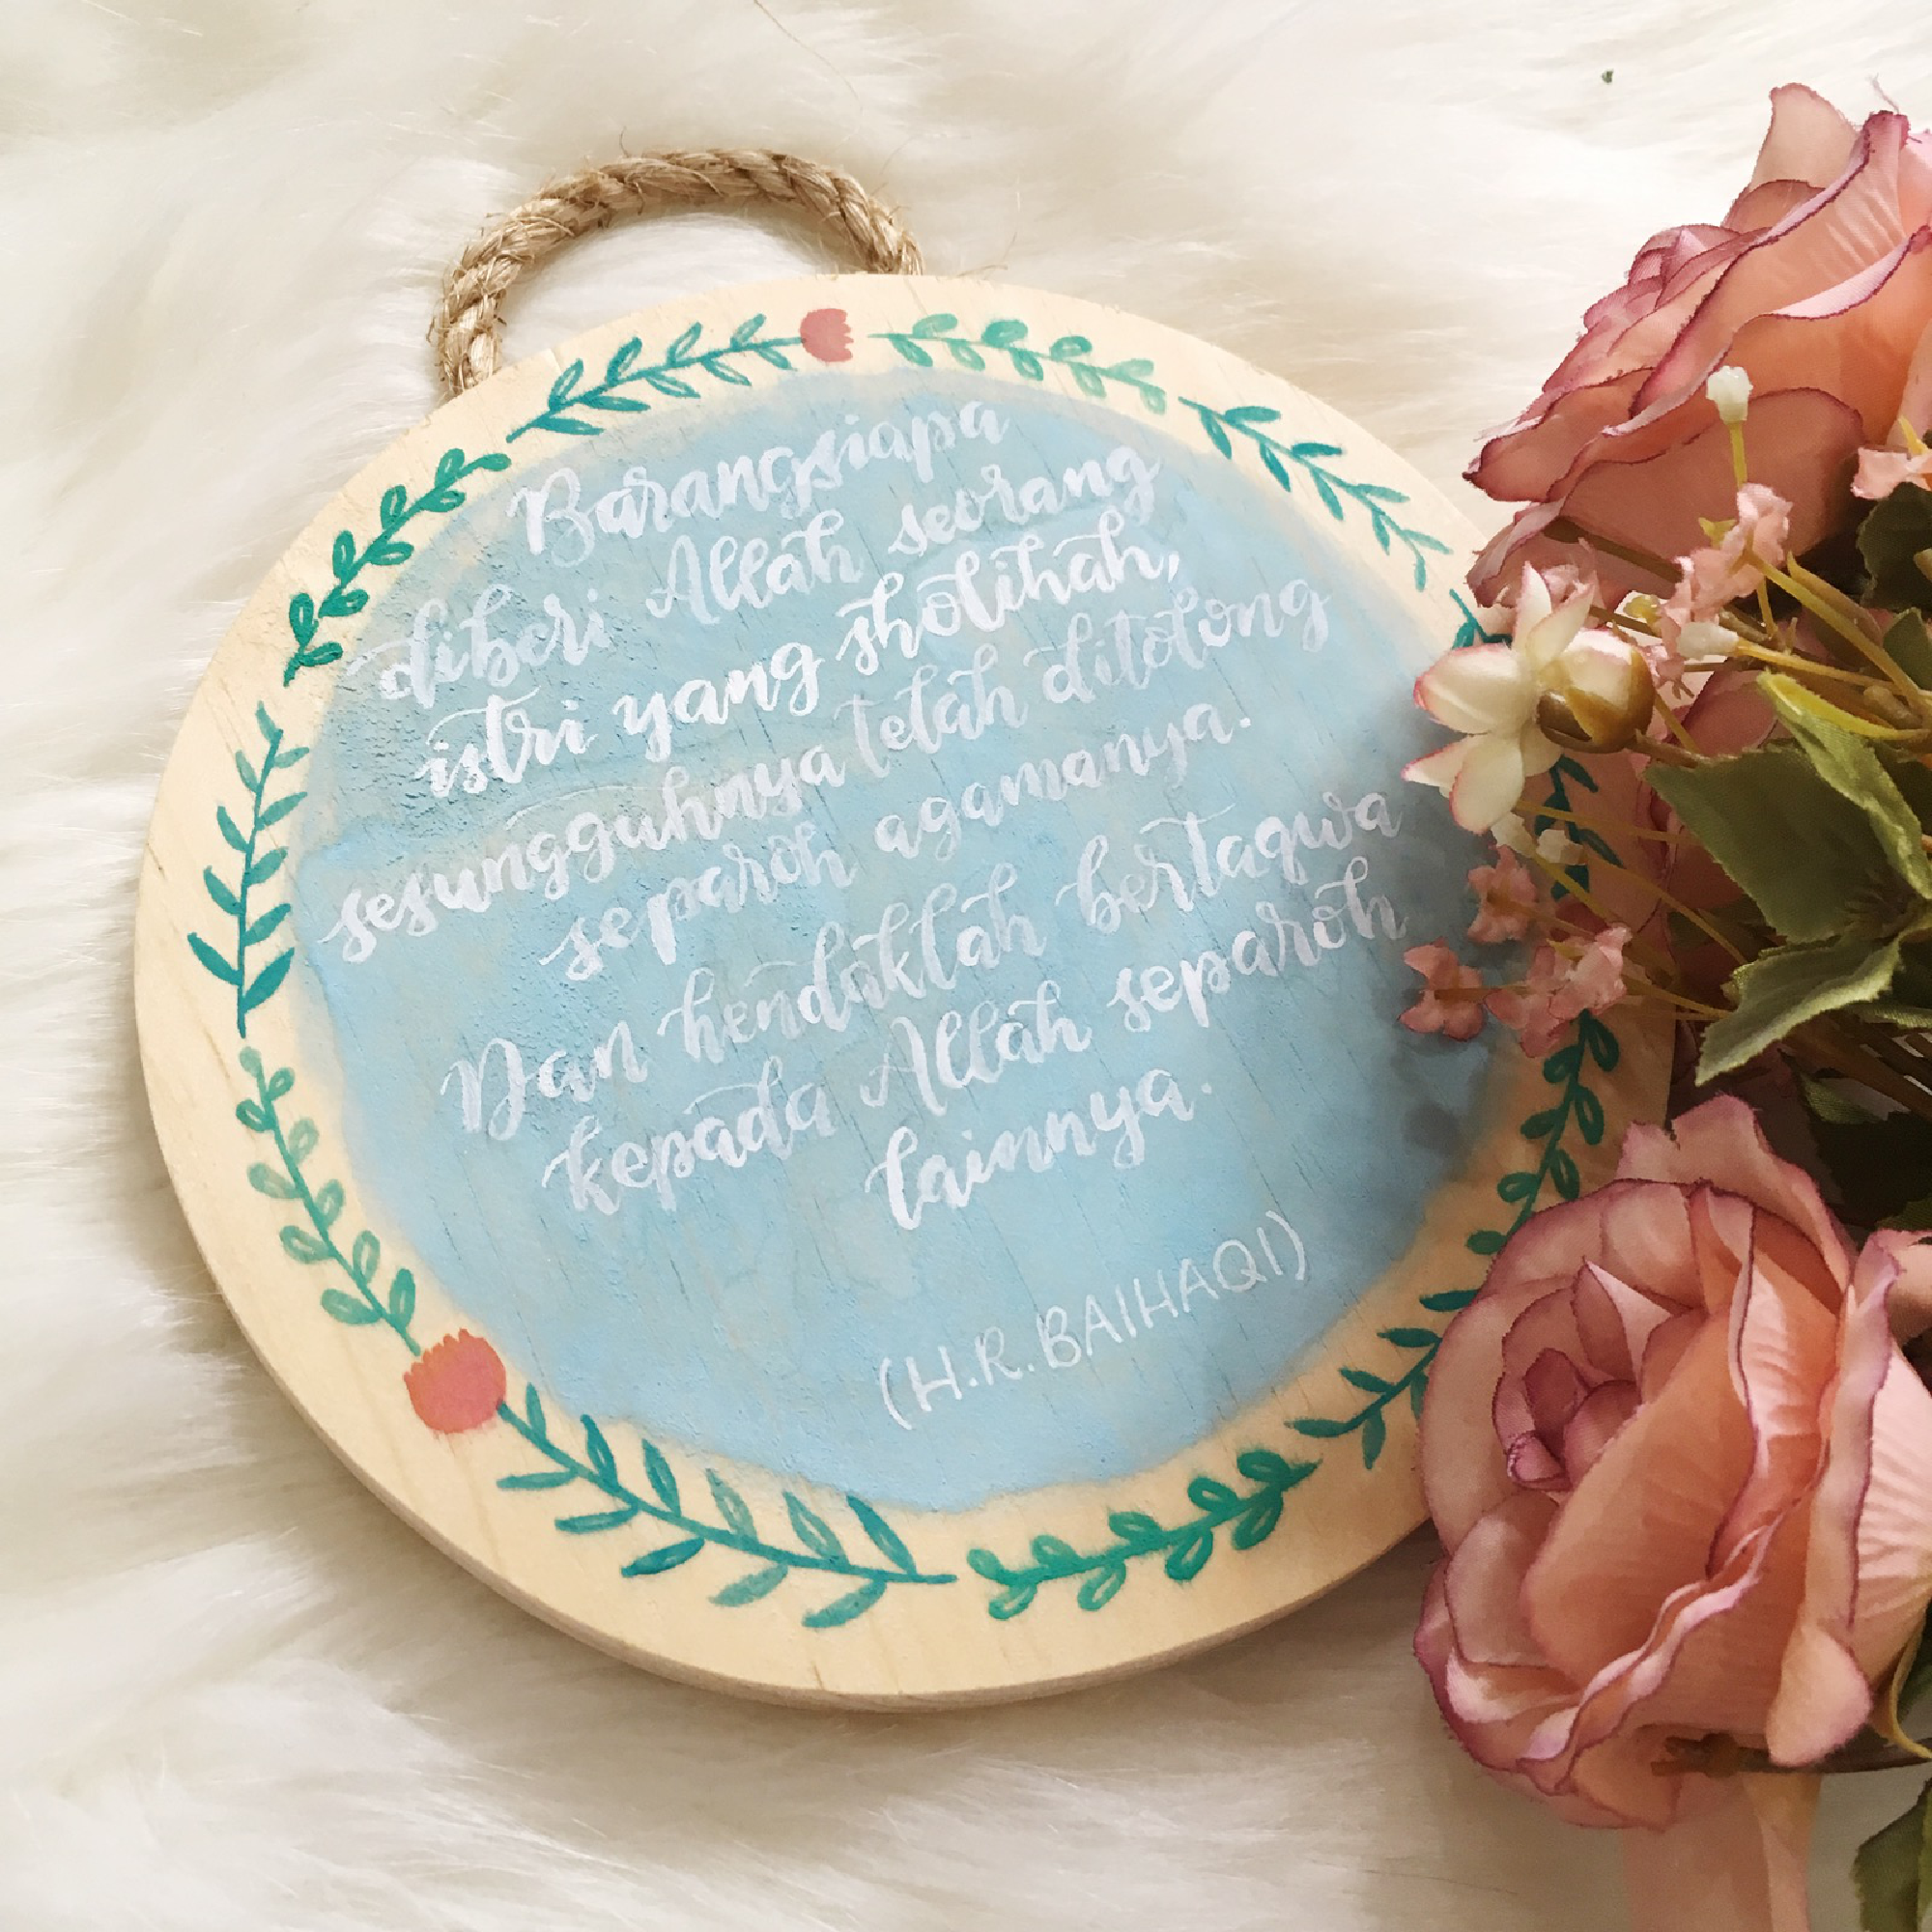 Barangsiapa
diberi Allah seorang
istri yang sholihah,
sesungguhnya telah ditolong
separoh agamanya.
Dan hendaklah bertaqwa
kepada Allah separoh
lainnya.
(H.R. BAIHAQI)